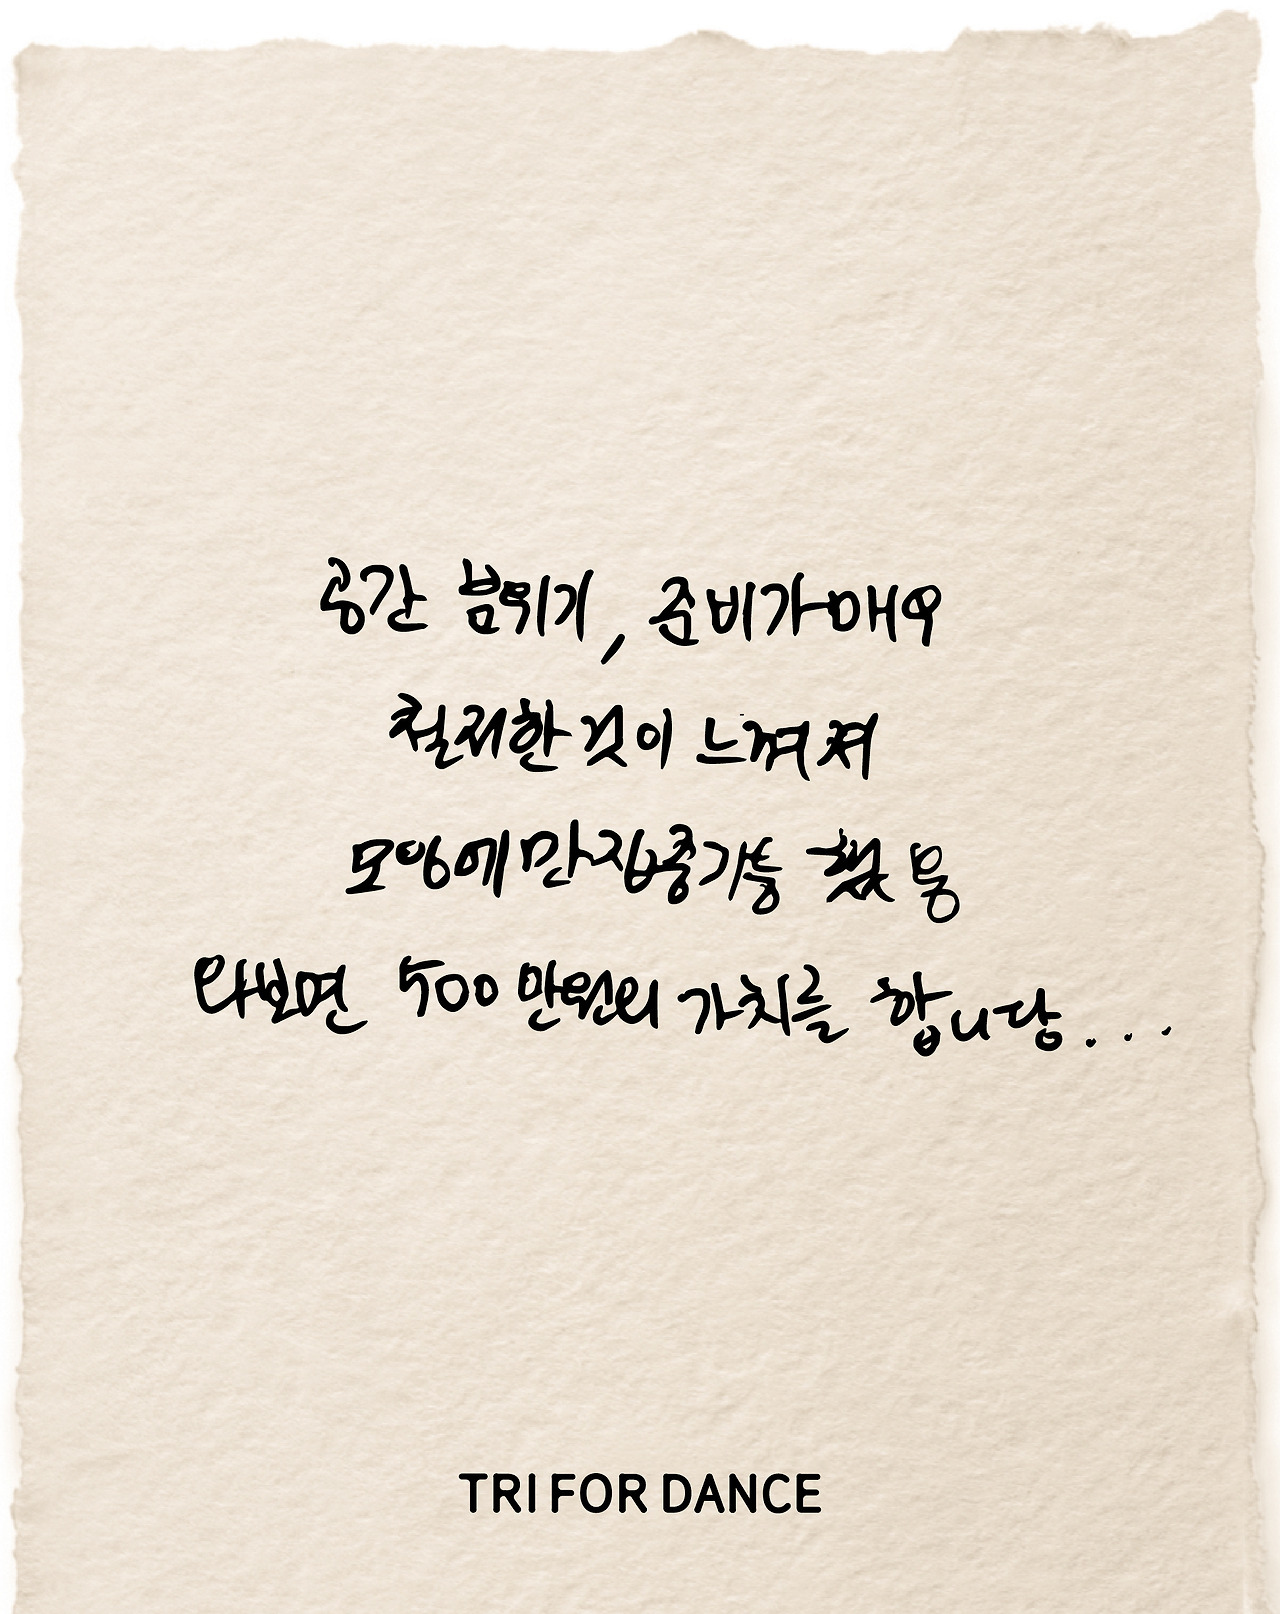 공간 분위기, 준비가 매우
철저한 것이 느껴져
모임에만 집중가능 했음
와보면 500만원의 가치를 합니당...
TRI FOR DANCE